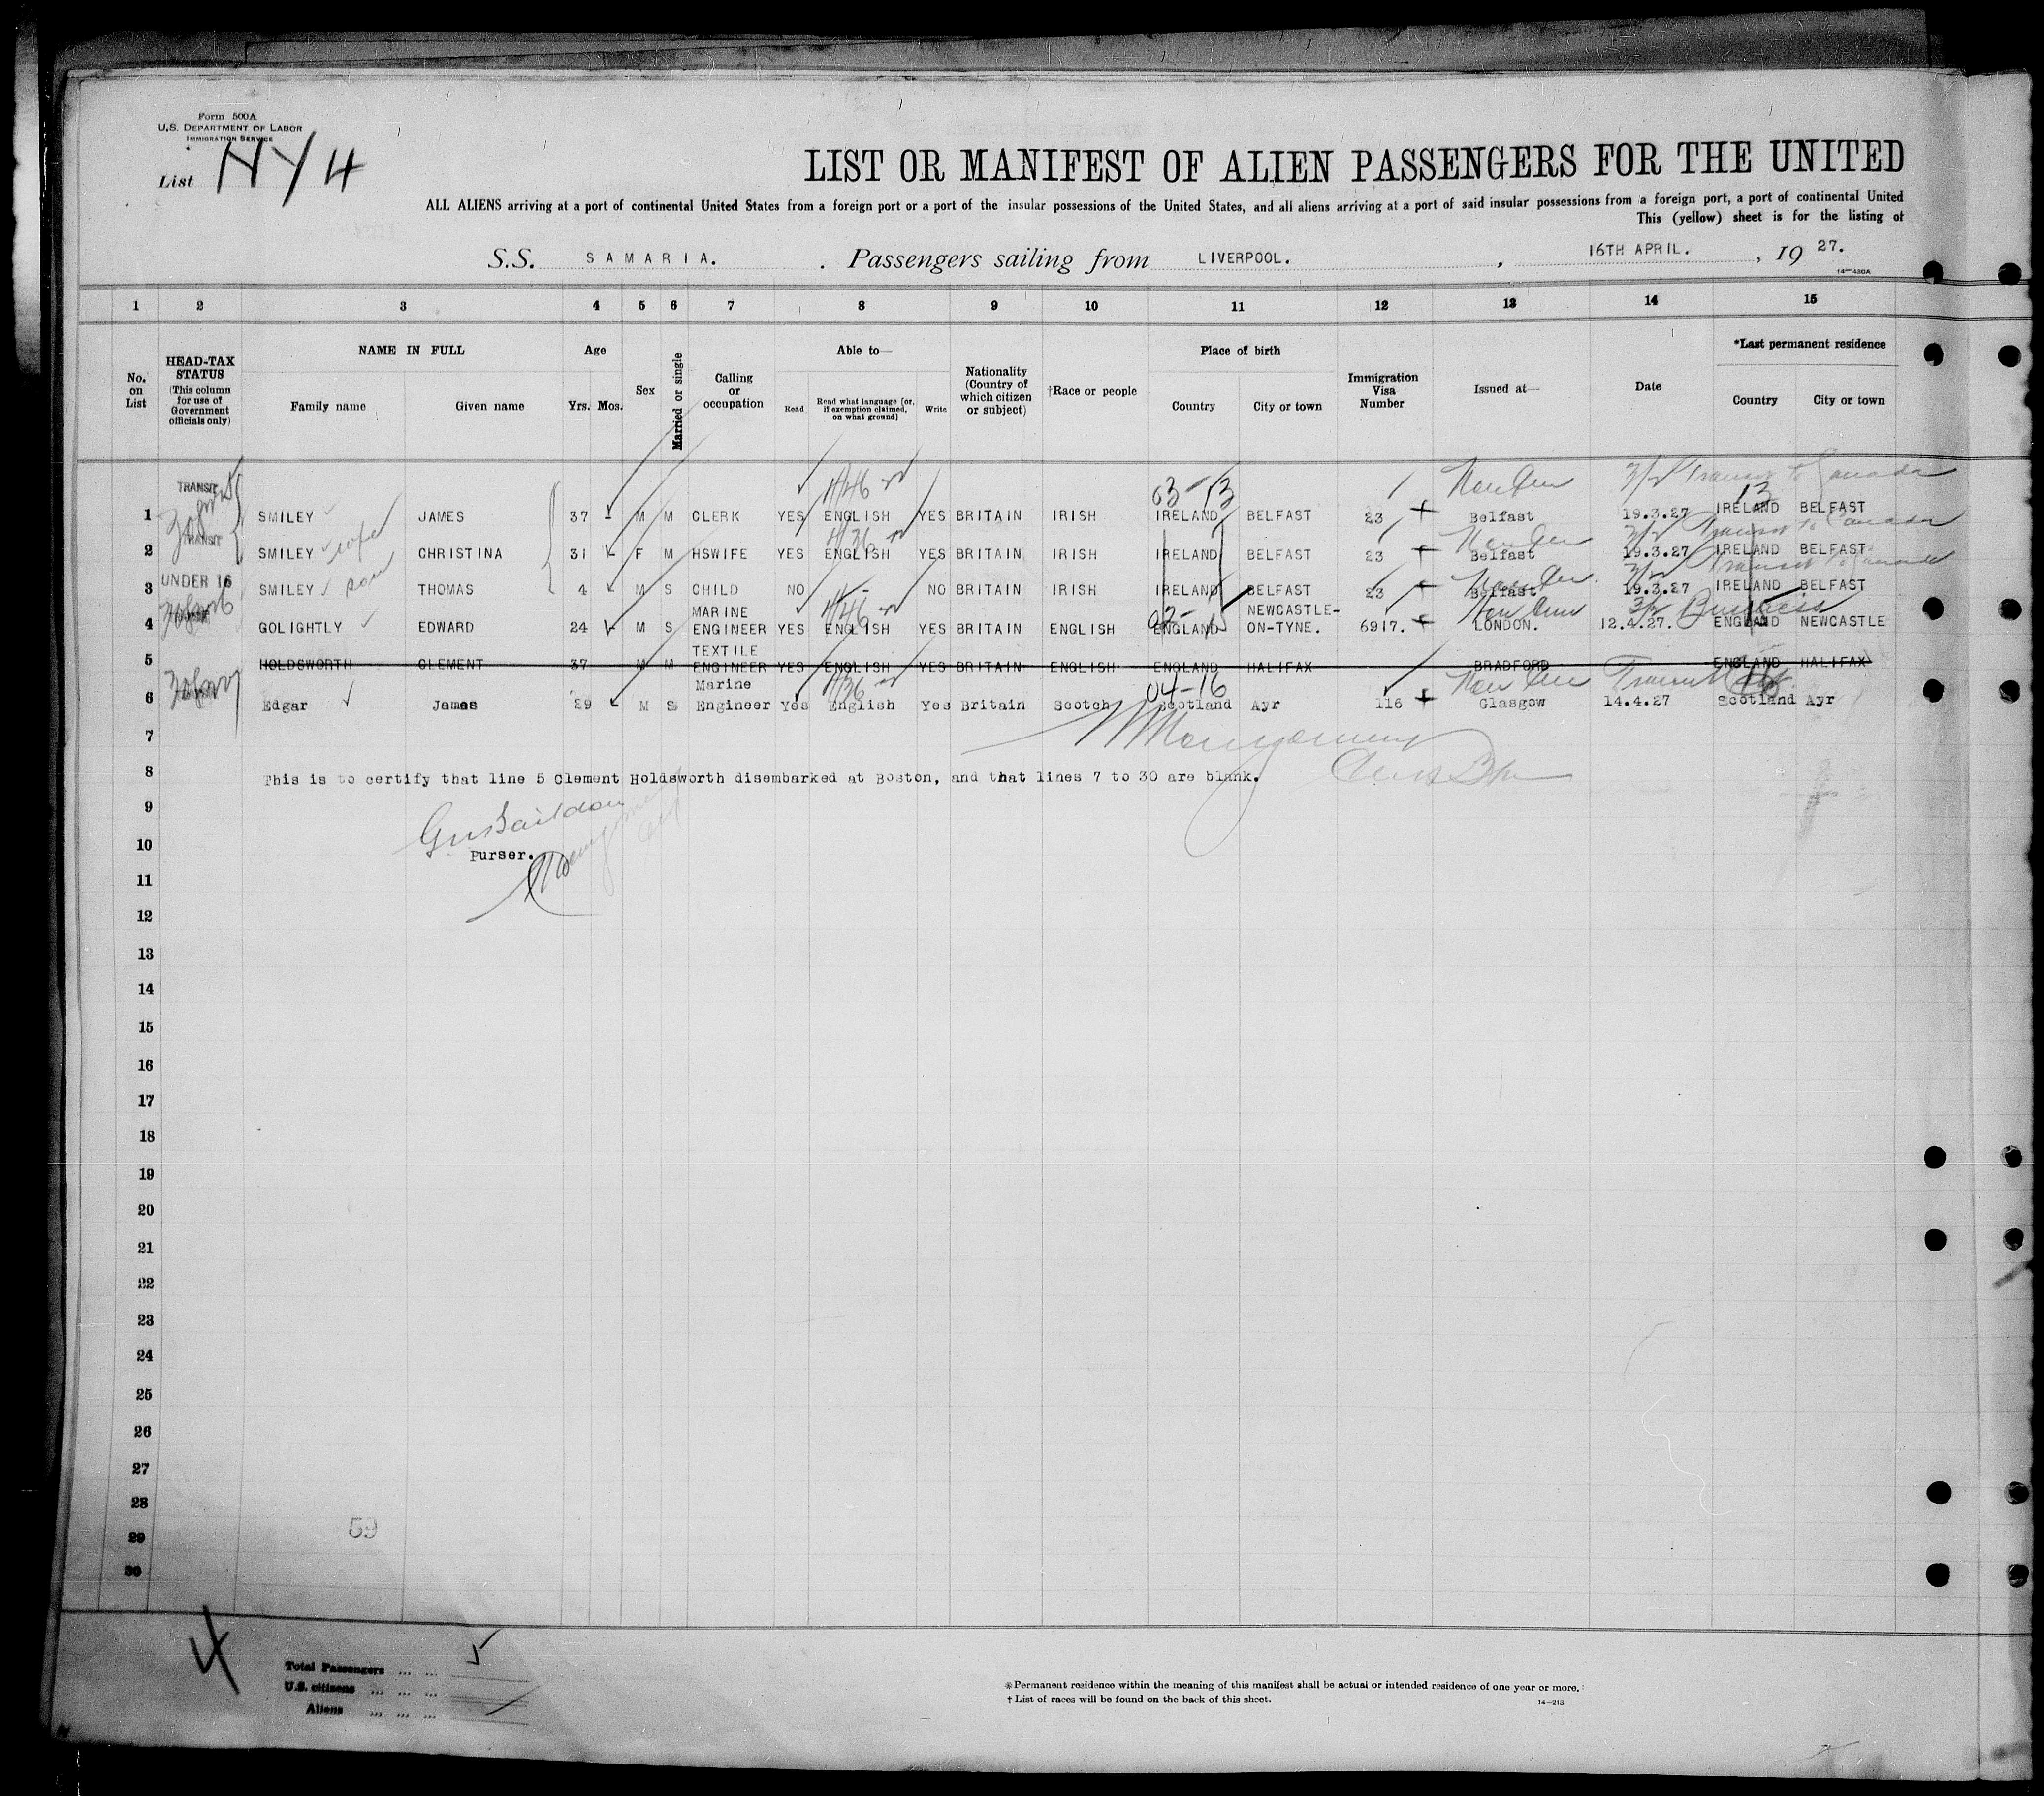 Form 500A
U.S. DEPARTMENT OF LABOR
IMMIGRATION SERVICE
List NY 4
LIST OR MANIFEST OF ALIEN PASSENGERS FOR THE UNITED
ALL ALIENS arriving at a port of continental United States from a foreign port or a port of the insular possessions of the United States, and all aliens arriving at a port of said insular possessions from a foreign port, a port of continental United
This (yellow) sheet is for the listing of
S.S. SAMARIA. . Passengers sailing from LIVERPOOL. , 16TH APRIL. , 19 27.
14—430A
1 2 3 4 5 6 7 8 9 10 11 12 13 14 15
No. on List
HEAD-TAX STATUS
(This column for use of Government officials only)
NAME IN FULL
Family name Given name
Age
Yrs. Mos.
Sex
Married or single
Calling or occupation
Able to—
Read
Read what language [or, if exemption claimed, on what ground]
Write
Nationality (Country of which citizen or subject)
†Race or people
Place of birth
Country City or town
Immigration Visa Number
Issued at—
Date
*Last permanent residence
Country City or town
TRANSIT 03-13 Transit to Canada
13
1 SMILEY JAMES 37 - M M CLERK YES ENGLISH YES BRITAIN IRISH IRELAND BELFAST 23 Belfast 19.3.27 IRELAND BELFAST
TRANSIT wife Transit to Canada
2 SMILEY CHRISTINA 31 F M HSWIFE YES ENGLISH YES BRITAIN IRISH IRELAND BELFAST 23 Belfast 19.3.27 IRELAND BELFAST
UNDER 16 son Transit to Canada
3 SMILEY THOMAS 4 M S CHILD NO - NO BRITAIN IRISH IRELAND BELFAST 23 Belfast 19.3.27 IRELAND BELFAST
02-15 Business 15
4 GOLIGHTLY EDWARD 24 M S MARINE ENGINEER YES ENGLISH YES BRITAIN ENGLISH ENGLAND NEWCASTLE-ON-TYNE. 6917. LONDON. 12.4.27. ENGLAND NEWCASTLE
5 HOLDSWORTH CLEMENT 37 M M TEXTILE ENGINEER YES ENGLISH YES BRITAIN ENGLISH ENGLAND HALIFAX BRADFORD ENGLAND HALIFAX
04-16 Transit 16
6 Edgar James 29 M S Marine Engineer Yes English Yes Britain Scotch Scotland Ayr 116 Glasgow 14.4.27 Scotland Ayr
7
8 This is to certify that line 5 Clement Holdsworth disembarked at Boston, and that lines 7 to 30 are blank.
9
10 Purser.
11
12
13
14
15
16
17
18
19
20
21
22
23
24
25
26
27
28
59
29
30
4
Total Passengers ... ... 5
U.S. citizens ... ... ...
Aliens ... ... ...
*Permanent residence within the meaning of this manifest shall be actual or intended residence of one year or more.
†List of races will be found on the back of this sheet.
14—213